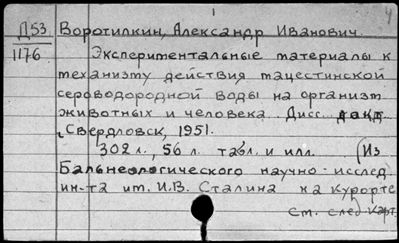 4
Д53 Воротилкин, Александр Иванович.
1176 Экспериментальные материалы к
механизму действия мацестинской
сероводородной воды на организм
животных и человека. Дисс. докт.
Свердловск, 1951.
302 л., 56 л. табл. и илл. (Из
Бальнеологического научно-исслед.
ин-та им. И.В. Сталина на курорте
См. след. карт.